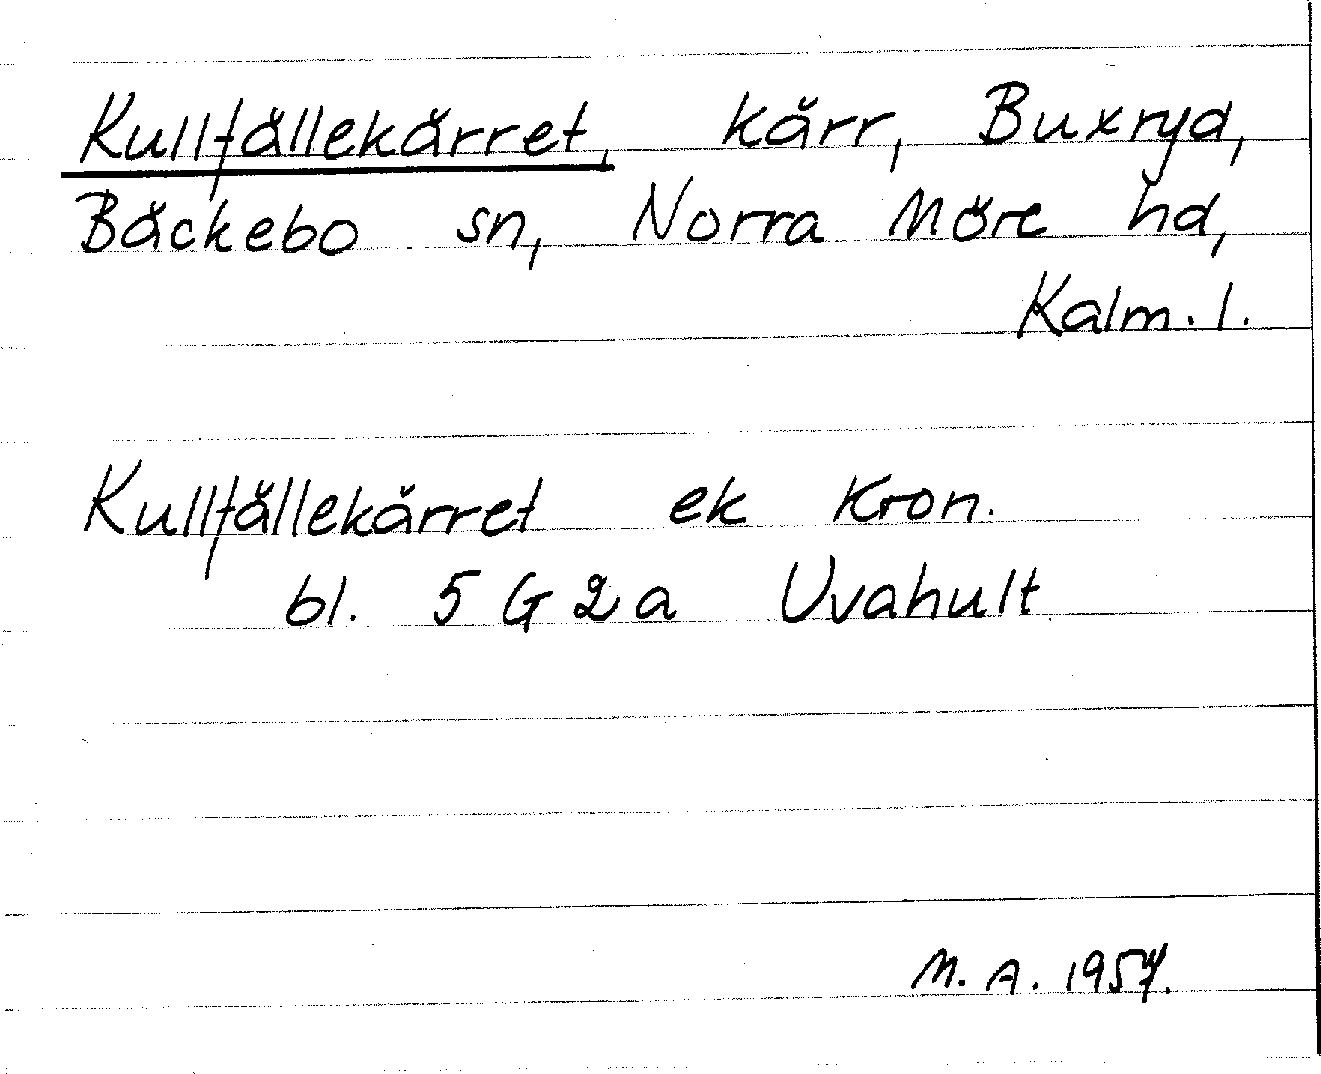 Kullfällekärret, kärr, Buxryd,
Bäckebo sn, Norra Möre hd,
Kalm. l.
Kullfällekärret ek Kron.
bl. 5 G 2 a Uvahult
M. A. 1957.